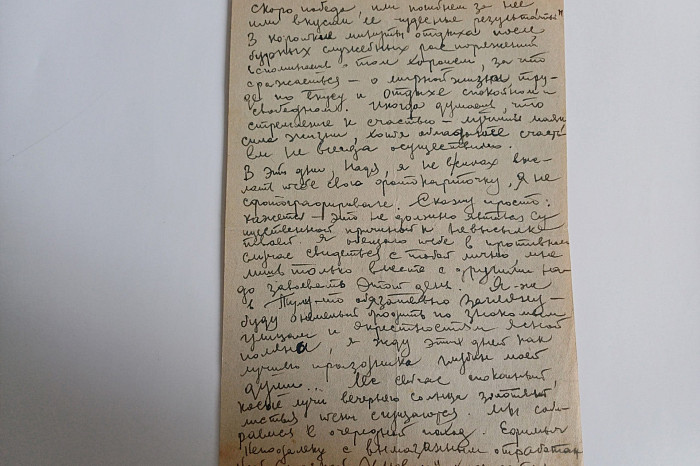 скоро победа или погибнем за нее
или вкусим ее чудесные результаты"
В короткие минуты отдыха после
бурных служебных распоряжений
вспоминаешь о том хорошем, за что
сражаешься – о мирной жизни, тру-
де по вкусу и отдыхе спокойном и
свободном. Иногда думаешь, что
стремление к счастью – лучший маяк
сила жизни, хотя обладание счасть
ем не всегда осуществимо.
В эти дни, Надя, я не в силах выс-
лать тебе свою фотокарточку, я не
фотографировался. Скажу просто:
кажется – это не должно являться су
щественной причиной к невысылке
твоей. Я обещаю тебе в противном
случае свидеться с тобой лично, мне
лишь только вместе с другими на-
до завоевать этот день. Я же
в Тулу-то обязательно загляну –
буду бродить по знакомым
улицам и окрестностям Ясной
поляны, я жду этих дней как
лучшего праздника глубин моей
души... Лес сейчас спокойный,
косые лучи вечернего солнца золотят
листья сгущаются. Мы соб-
рались в очередной поход. Едим
неподалеку с вымазанным отработан